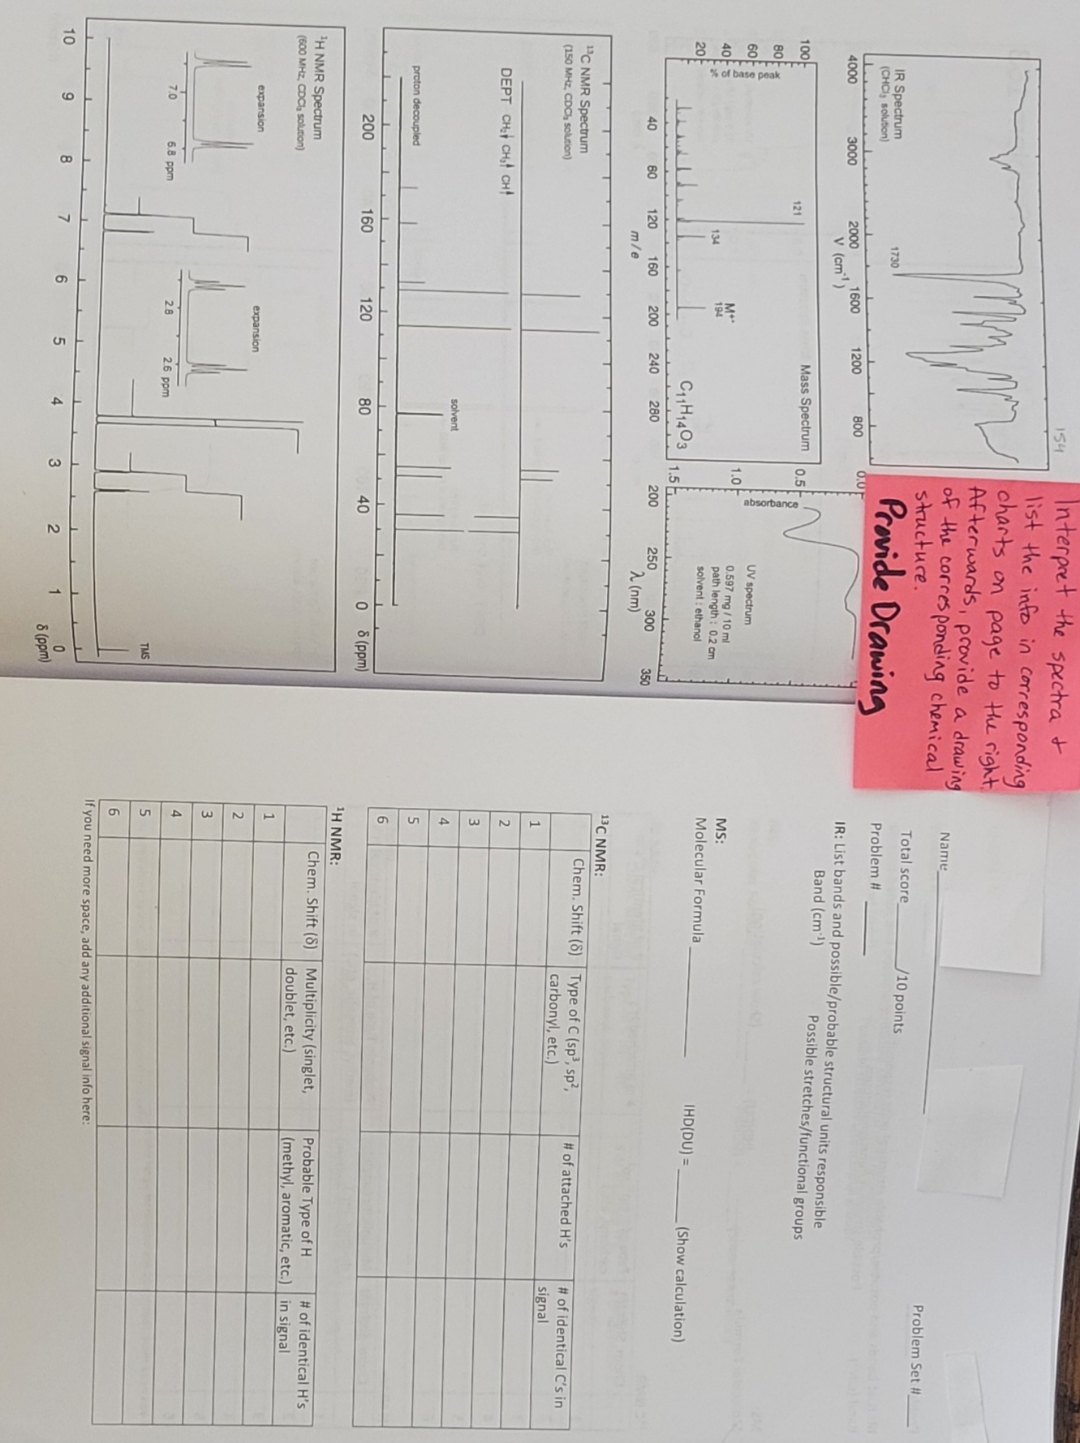 154
IR Spectrum
(CHCl3 solution)
1730
4000 3000 2000 1600 1200 800
V (cm-1)
100
80
60
40
20
% of base peak
Mass Spectrum
121
134
M+•
194
C11H14O3
40 80 120 160 200 240 280
m / e
0.0
0.5
1.0
1.5
absorbance
UV spectrum
0.597 mg / 10 ml
path length : 0.2 cm
solvent : ethanol
200 250 300 350
λ (nm)
13C NMR Spectrum
(150 MHz, CDCl3 solution)
DEPT CH2 CH3 CH
proton decoupled
solvent
200 160 120 80 40 0 δ (ppm)
1H NMR Spectrum
(600 MHz, CDCl3 solution)
expansion
7.0 6.8 ppm
expansion
2.8 2.6 ppm
TMS
10 9 8 7 6 5 4 3 2 1 0
δ (ppm)
Interpret the spectra +
list the info in corresponding
charts on page to the right.
Afterwards, provide a drawing
of the corresponding chemical
structure.
Provide Drawing
Name
Problem Set #
Total score /10 points
Problem #
IR: List bands and possible/probable structural units responsible
Band (cm-1) Possible stretches/functional groups
MS:
Molecular Formula IHD(DU) = (Show calculation)
13C NMR:
Chem. Shift (δ) Type of C (sp3, sp2, carbonyl, etc.) # of attached H's # of identical C's in signal
1
2
3
4
5
6
1H NMR:
Chem. Shift (δ) Multiplicity (singlet, doublet, etc.) Probable Type of H (methyl, aromatic, etc.) # of identical H's in signal
1
2
3
4
5
6
If you need more space, add any additional signal info here: